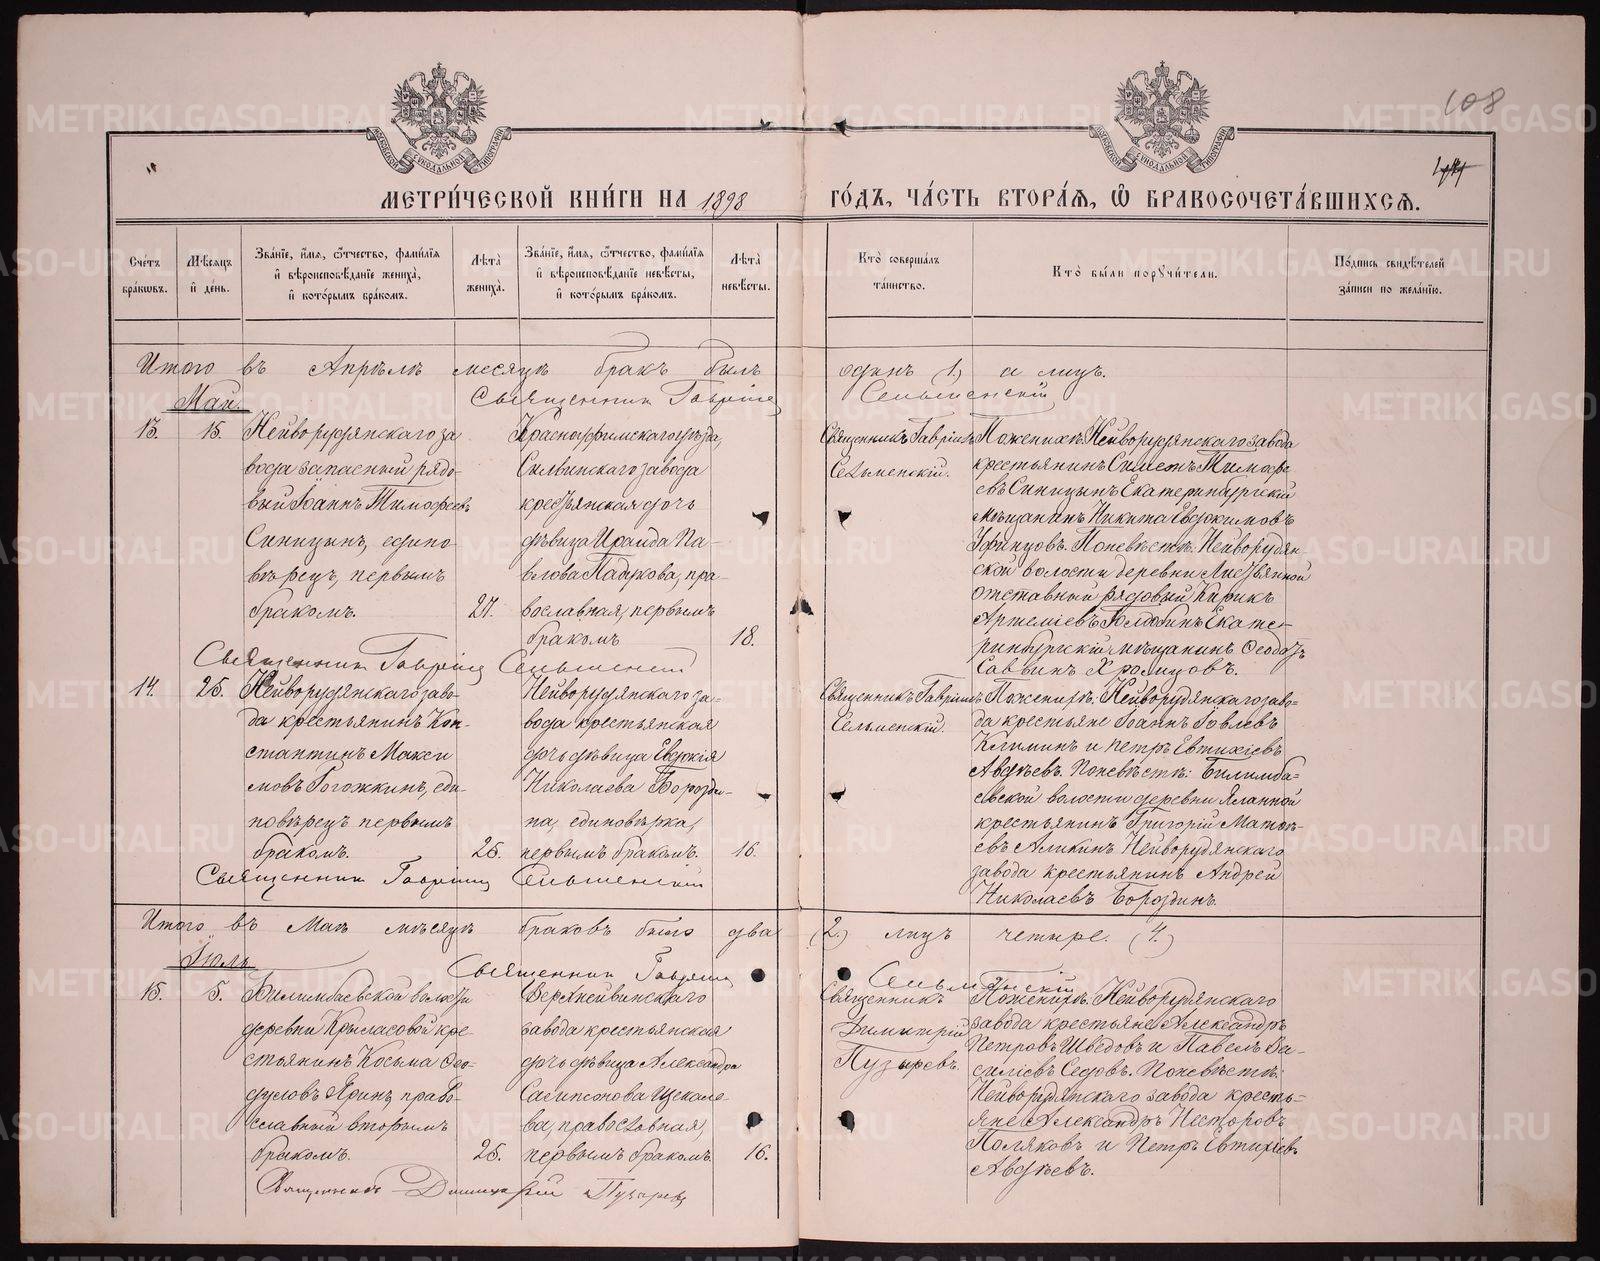 108
МЕТРИ́ЧЕСКОЙ КНИ́ГИ НА 1898 ГО́ДЪ, ЧА́СТЬ ВТОРА́Ѧ, Ѽ БРАКОСОЧЕТА́ВШИХСѦ.
Сче́тъ бра́кѡвъ.
Мѣ́сѧцъ и҆ де́нь.
Зва́нїе, и҆́мѧ, ѻ҆́тчество, фами́лїѧ и҆ вѣроисповѣ́данїе жениха̀, и҆ кото́рымъ бра́комъ.
Лѣ́та̀ жениха̀.
Зва́нїе, и҆́мѧ, ѻ҆́тчество, фами́лїѧ и҆ вѣроисповѣ́данїе невѣ́сты, и҆ кото́рымъ бра́комъ.
Лѣ́та̀ невѣ́сты.
Кто̀ соверша́лъ та́инство.
Кто̀ бы́ли порꙋчи́тели.
По́дпись свидѣ́телей за́писи по жела́нїю.
Итого въ Апрѣлѣ месяцѣ бракъ былъ одинъ (1) а лицъ.
Священникъ Гавріилъ Сельменскій
Май.
13. 15.
Нейворудянскаго за
вода запасный рядо
вый Іоаннъ Тимофеевъ
Синицынъ, едино
вѣрецъ, первымъ
бракомъ. 27.
Красноуфимскаго уѣзда,
Сылвинскаго завода
крестьянская дочь
дѣвица Ираида Па-
влова, пра-
вославная, первымъ
бракомъ 18.
Священникъ Гавріилъ
Сельменскій.
По женихѣ: Нейворудянскаго завода
крестьянинъ Тимофе
евъ Синицынъ Екатеринбургскій
мѣщанинъ Никита Евдокимовъ
Уфинцовъ. По невѣстѣ: Нейворудян-
ской волости деревни
отставный рядовый Кирикъ
Артеміевъ Голдобинъ Екате-
ринбургскій мѣщанинъ
Саввинъ
Священникъ Гавріилъ Сельменскій
14. 25.
Нейворудянскаго заво-
да крестьянинъ Кон-
стантинъ Макси
мовъ Рогожкинъ, еди-
новѣрецъ первымъ
бракомъ. 25.
Нейворудянскаго за-
вода крестьянская
дочь дѣвица Евдокія
Николаева Борозди-
на, единовѣрка,
первымъ бракомъ. 16.
Священникъ Гавріилъ
Сельменскій.
По женихѣ: Нейворудянскаго заво-
да крестьяне Іоаннъ Іовлевъ
Климинъ и Петръ Евтихіевъ
Авдѣевъ. По невѣстѣ: Билимба-
евской волости деревни Яланной
крестьянинъ Григорій Матвѣ-
евъ Аликинъ Нейворудянскаго
завода крестьянинъ Андрей
Николаевъ Бороздинъ.
Священникъ Гавріилъ Сельменскій
Итого въ Маѣ мѣсяцѣ браковъ было два (2.) лицъ четыре. (4.)
Священникъ Гавріилъ Сельменскій
Іюль
15. 5.
Билимбаевской волости
деревни Крыласовой кре-
стьянинъ Косьма Ѳео-
дуловъ Яринъ, право-
славный вторымъ
бракомъ. 25.
Верхнейвинскаго
завода крестьянская
дочь дѣвица Александра
Сампсонова Щекале-
ва, православная,
первымъ бракомъ. 16.
Священникъ
Димитрій
Пузыревъ.
По женихѣ: Нейворудянскаго
завода крестьяне Александръ
Петровъ Шведовъ и Павелъ Ва-
силіевъ Седовъ. По невѣстѣ:
Нейворудянскаго завода кресть-
яне Александръ Несторовъ
Поляковъ и Петръ Евтихіевъ
Авдѣевъ.
Священникъ Димитрій Пузыревъ